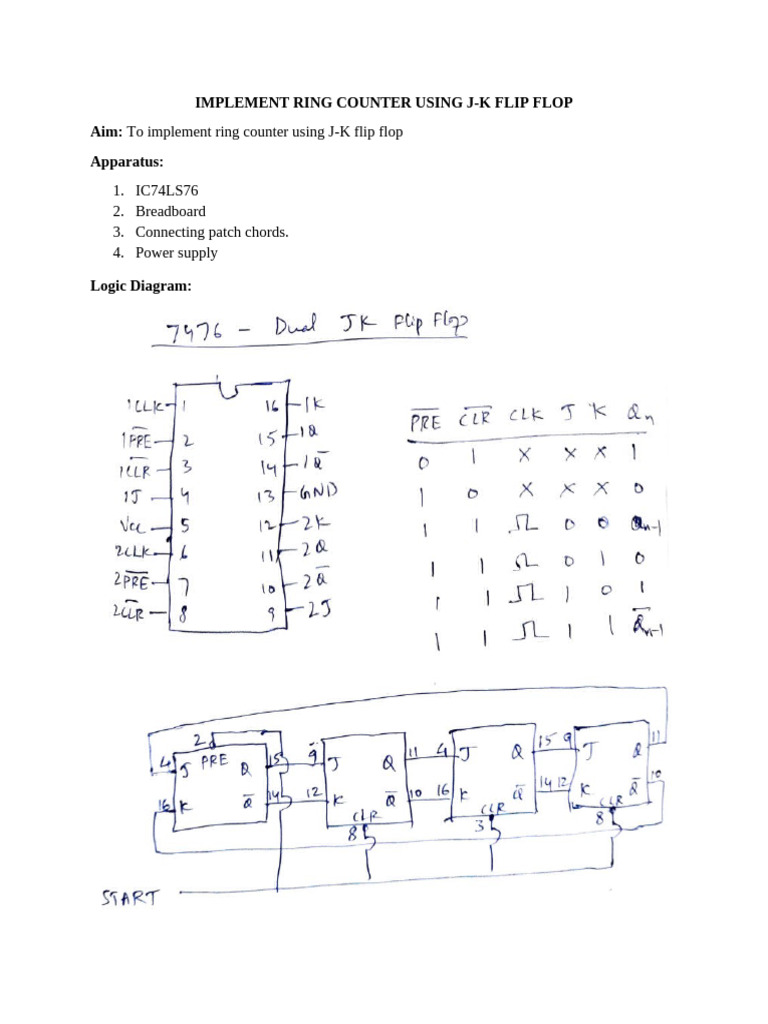 IMPLEMENT RING COUNTER USING J-K FLIP FLOP
Aim: To implement ring counter using J-K flip flop
Apparatus:
1. IC74LS76
2. Breadboard
3. Connecting patch chords.
4. Power supply
Logic Diagram:
7476 – Dual JK Flip Flop
1CLK 1 16 1K
1P̅R̅E̅ 2 15 1Q
1C̅L̅R̅ 3 14 1Q̅
1J 4 13 GND
Vcc 5 12 2K
2CLK 6 11 2Q
2P̅R̅E̅ 7 10 2Q̅
2C̅L̅R̅ 8 9 2J
P̅R̅E̅ C̅L̅R̅ CLK J K Qn
0 1 X X X 1
1 0 X X X 0
1 1 0 0 Qn-1
1 1 0 1 0
1 1 1 0 1
1 1 1 1 Q̅n-1
2 11
4 J PRE Q 15 9 J Q 11 4 J Q 15 9 J Q
16 K Q̅ 14 12 K Q̅ 10 16 K Q̅ 14 12 K Q̅ 10
CLR CLR CLR
8 3 8
START